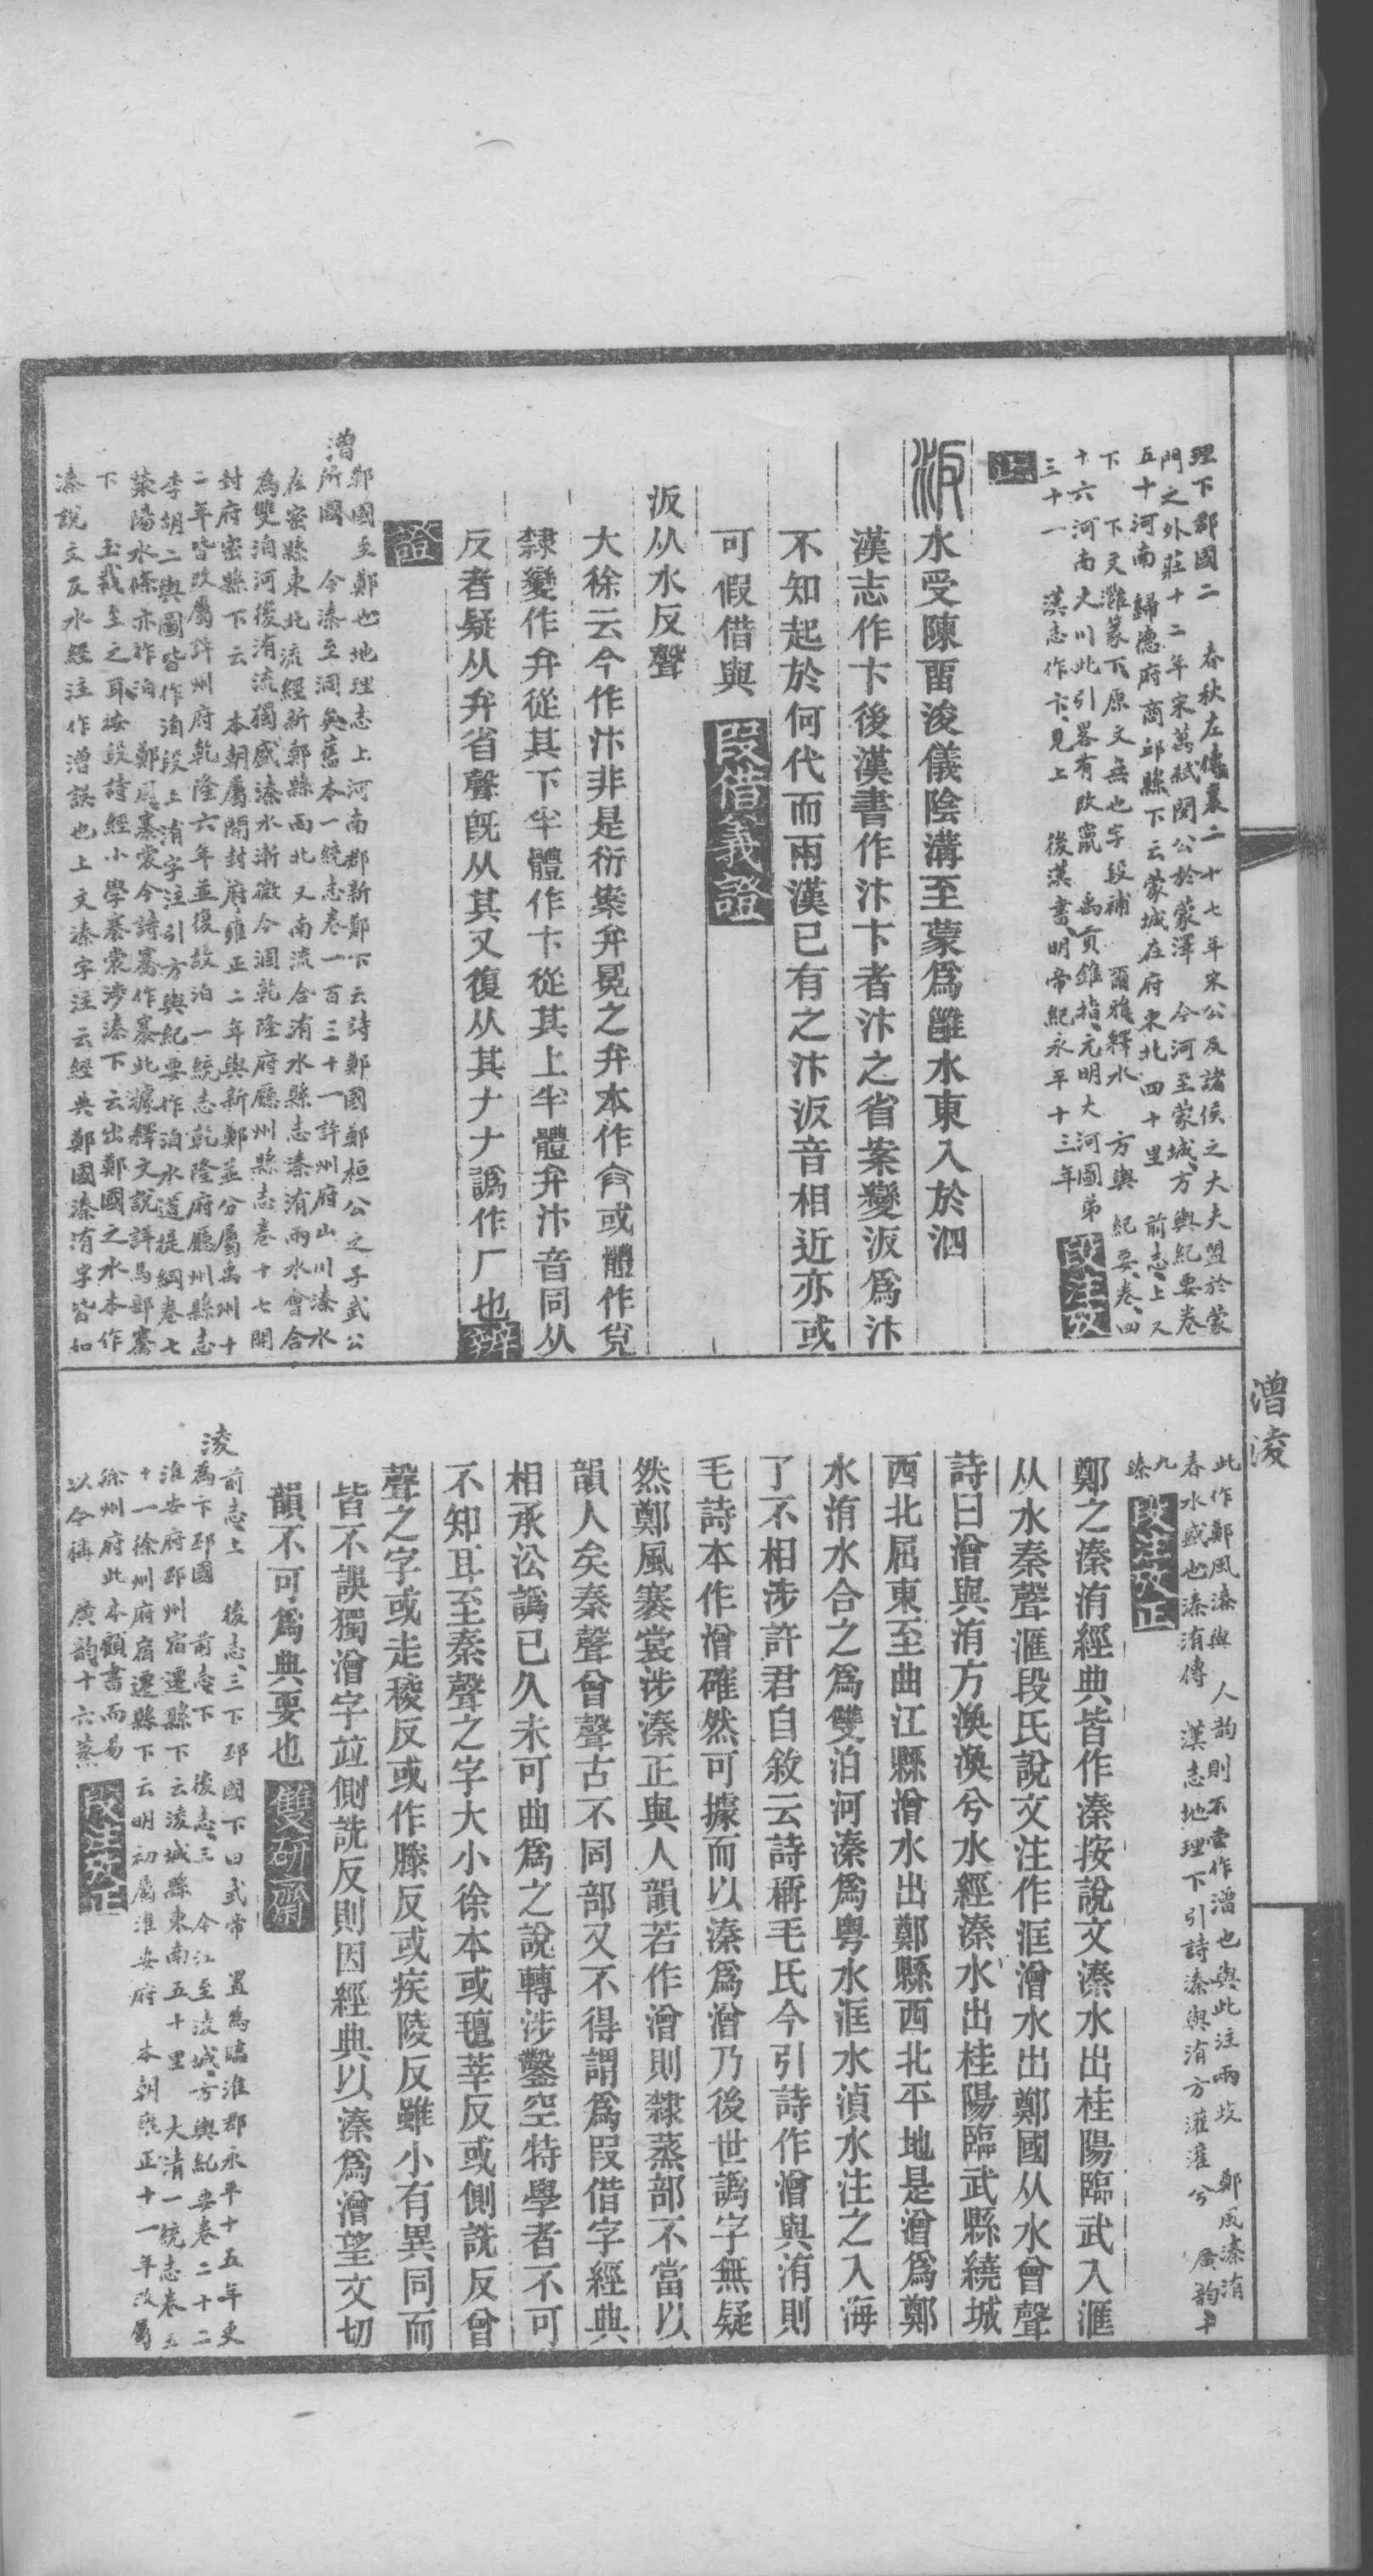 理下郡國二　春秋左傳襄二十七年宋公及諸侯之大夫盟於蒙
門之外莊十二年宋萬弒閔公於蒙澤　今河至蒙城、方輿紀要卷
五十河南　歸德府商邱縣下云蒙城在府東北四十里　前志、上又
下　下文灉篆下、原文無也字段補　爾雅釋水　方輿　紀要、卷、四
十六河南大川此引畧有改竄　禹貢錐指、元明大河圖弟
三十一　漢志作卞、見上　後漢書、明帝紀永平十三年　段注攷
正
汳水受陳畱浚儀陰溝至蒙爲雝水東入於泗
漢志作卞後漢書作汴卞者汴之省案變汳爲汴
不知起於何代而兩漢已有之汴汳音相近亦或
可假借與　段借義證
汳从水反聲
大徐云今作汴非是衍案弁冕之弁本作㝸或體作𠑹
隸變作弁從其下半體作卞從其上半體弁汴音同从
反者疑从弁省聲旣从其又復从其𠂇𠂇譌作厂也　辨
證
潧
鄭國至鄭也地理志上河南郡新鄭下云詩鄭國鄭桓公之子武公
所國　今溱至洞矣舊本一統志卷一百三十一許州府山川溱水
在密縣東北流經新鄭縣西北又南流合洧水縣志溱洧兩水會合
爲雙洎河後洧流獨盛溱水漸微今涸乾隆府廳州縣志卷十七開
封府密縣下云　本朝屬開封府雍正二年與新鄭並分屬禹州十
二年皆改屬許州府乾隆六年並復故洎一統志乾隆府廳州縣志
李胡二輿圖皆作洧段上洧字注引方輿紀要作洎水道提綱卷七
滎陽水條亦作洎　鄭風褰裳今詩騫作褰此據釋文說詳馬部騫
下　玉裁至之耳按段詩經小學褰裳涉溱下云出鄭國之水本作
溱說文及水經注作潧誤也上文溱字注云經典鄭國溱洧字皆如
潧淩
此作鄭風溱與　人韵則不當作潧也與此注兩歧　鄭風溱洧
春水盛也溱洧傳　漢志地理下引詩溱與洧方灌灌兮　廣韵十
九臻　段注攷正
鄭之溱洧經典皆作溱按說文溱水出桂陽臨武入滙
从水秦聲滙段氏說文注作洭潧水出鄭國从水曾聲
詩曰潧與洧方渙渙兮水經溱水出桂陽臨武縣繞城
西北屈東至曲江縣潧水出鄭縣西北平地是潧爲鄭
水洧水合之爲雙洎河溱爲粤水洭水湞水注之入海
了不相涉許君自敘云詩稱毛氏今引詩作潧與洧則
毛詩本作潧確然可據而以溱爲潧乃後世譌字無疑
然鄭風褰裳涉溱正與人韻若作潧則隸蒸部不當以
韻人矣秦聲曾聲古不同部又不得謂爲叚借字經典
相承㳂譌已久未可曲爲之說轉涉鑿空特學者不可
不知耳至秦聲之字大小徐本或𤮜莘反或側詵反曾
聲之字或走稜反或作滕反或疾陵反雖小有異同而
皆不誤獨潧字竝側詵反則因經典以溱爲潧望文切
韻不可爲典要也　雙研齋
淩
前志、上　後志、三下邳國下曰武帝　置爲臨淮郡永平十五年更
爲下邳國　前志下　後志、三　今江至淩城、方輿紀要卷二十二
淮安府邳州宿遷縣下云淩城縣東南五十里　大清一統志卷五
十一徐州府宿遷縣下云明初屬淮安府　本朝雍正十一年改屬
徐州府此本顧書而易
以今稱　廣韵十六蒸　段注攷正